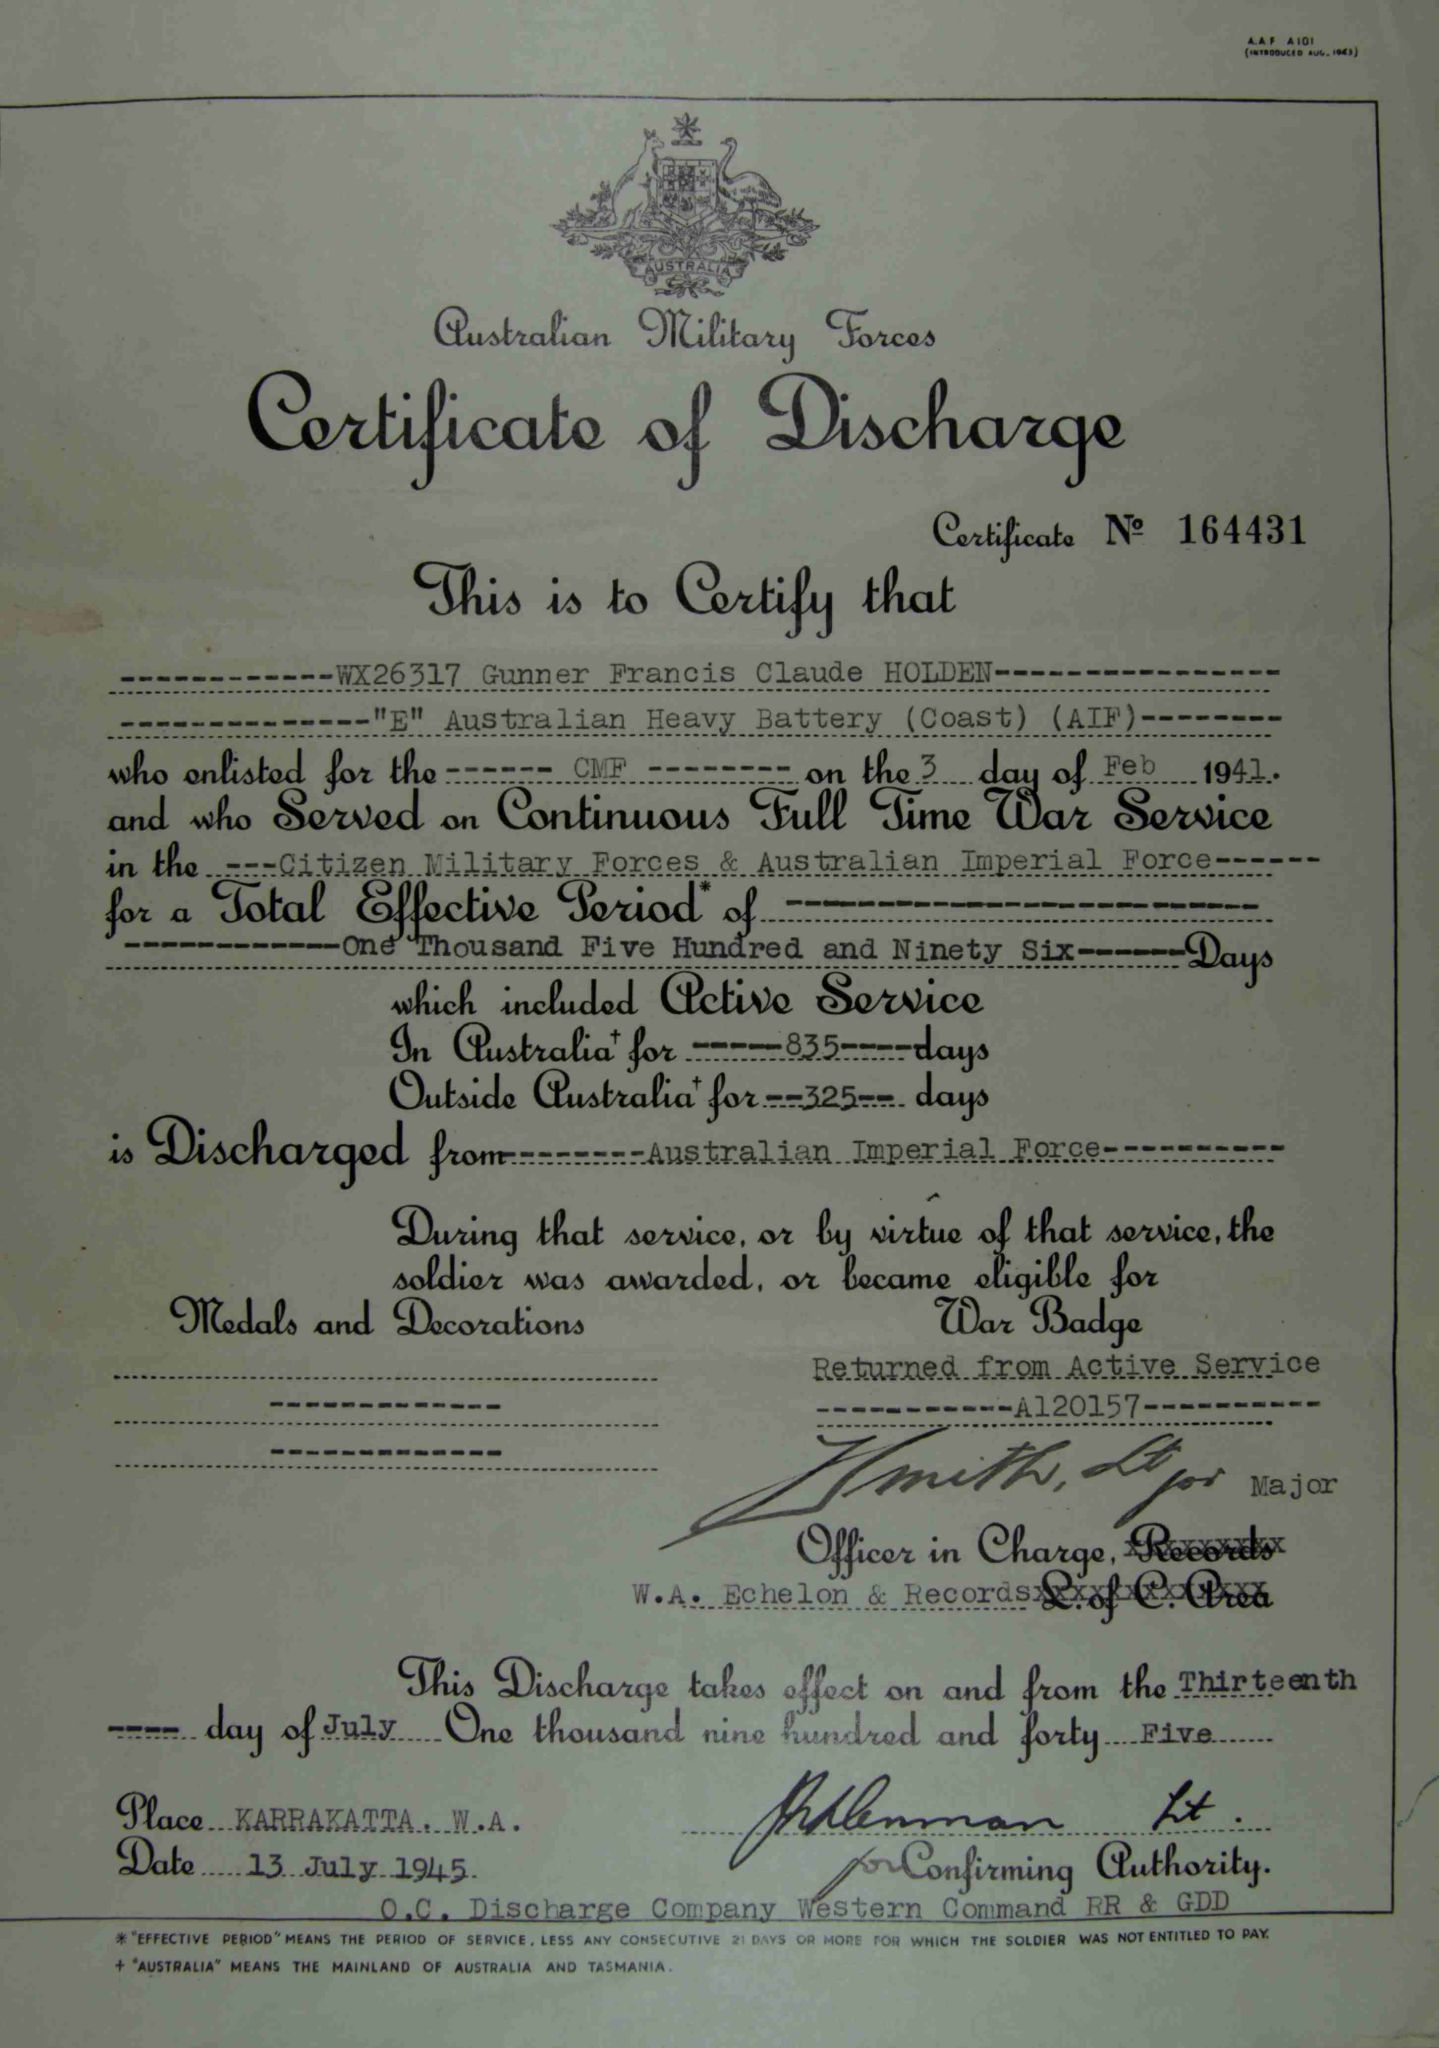 A.A.F A101
(INTRODUCED AUG. 1943)
AUSTRALIA
Australian Military Forces
Certificate of Discharge
Certificate No 164431
This is to Certify that
------------WX26317 Gunner Francis Claude HOLDEN----------------
--------------"E" Australian Heavy Battery (Coast) (AIF)--------
who enlisted for the ------ CMF -------- on the 3 day of Feb 1941.
and who Served on Continuous Full Time War Service
in the ---Citizen Military Forces & Australian Imperial Force------
for a Total Effective Period* of --------------------------
------------One Thousand Five Hundred and Ninety Six------Days
which included Active Service
In Australia† for -----835----days
Outside Australia† for --325-- days
is Discharged from--------Australian Imperial Force----------
During that service, or by virtue of that service, the
soldier was awarded, or became eligible for
Medals and Decorations War Badge
Returned from Active Service
-----------A120157----------
Smith, Lt for Major
Officer in Charge, Records
W.A. Echelon & Records L. of C. Area
This Discharge takes effect on and from the Thirteenth
---- day of July One thousand nine hundred and forty Five
Place KARRAKATTA. W.A. Lt.
Date 13 July 1945. for Confirming Authority.
O.C. Discharge Company Western Command RR & GDD
* "EFFECTIVE PERIOD" MEANS THE PERIOD OF SERVICE, LESS ANY CONSECUTIVE 21 DAYS OR MORE FOR WHICH THE SOLDIER WAS NOT ENTITLED TO PAY.
† "AUSTRALIA" MEANS THE MAINLAND OF AUSTRALIA AND TASMANIA.